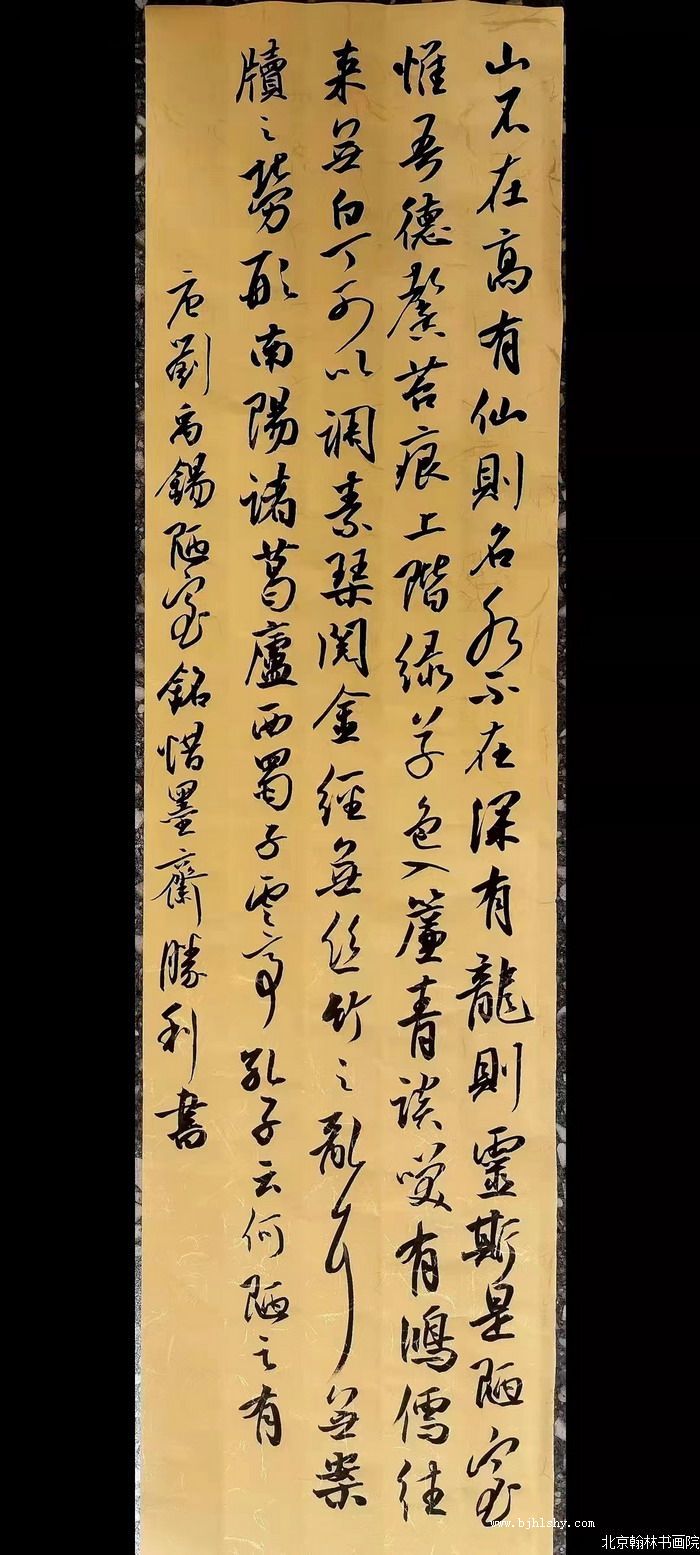 山不在高有仙則名水不在深有龍則靈斯是陋室
惟吾德馨苔痕上階緑草色入簾青談笑有鴻儒往
来無白丁可以調素琴閱金經無絲竹之亂耳無案
牘之勞形南陽諸葛廬西蜀子雲亭孔子云何陋之有
唐劉禹錫陋室銘惜墨齋勝利書
www.bjhlshy.com
北京翰林书画院